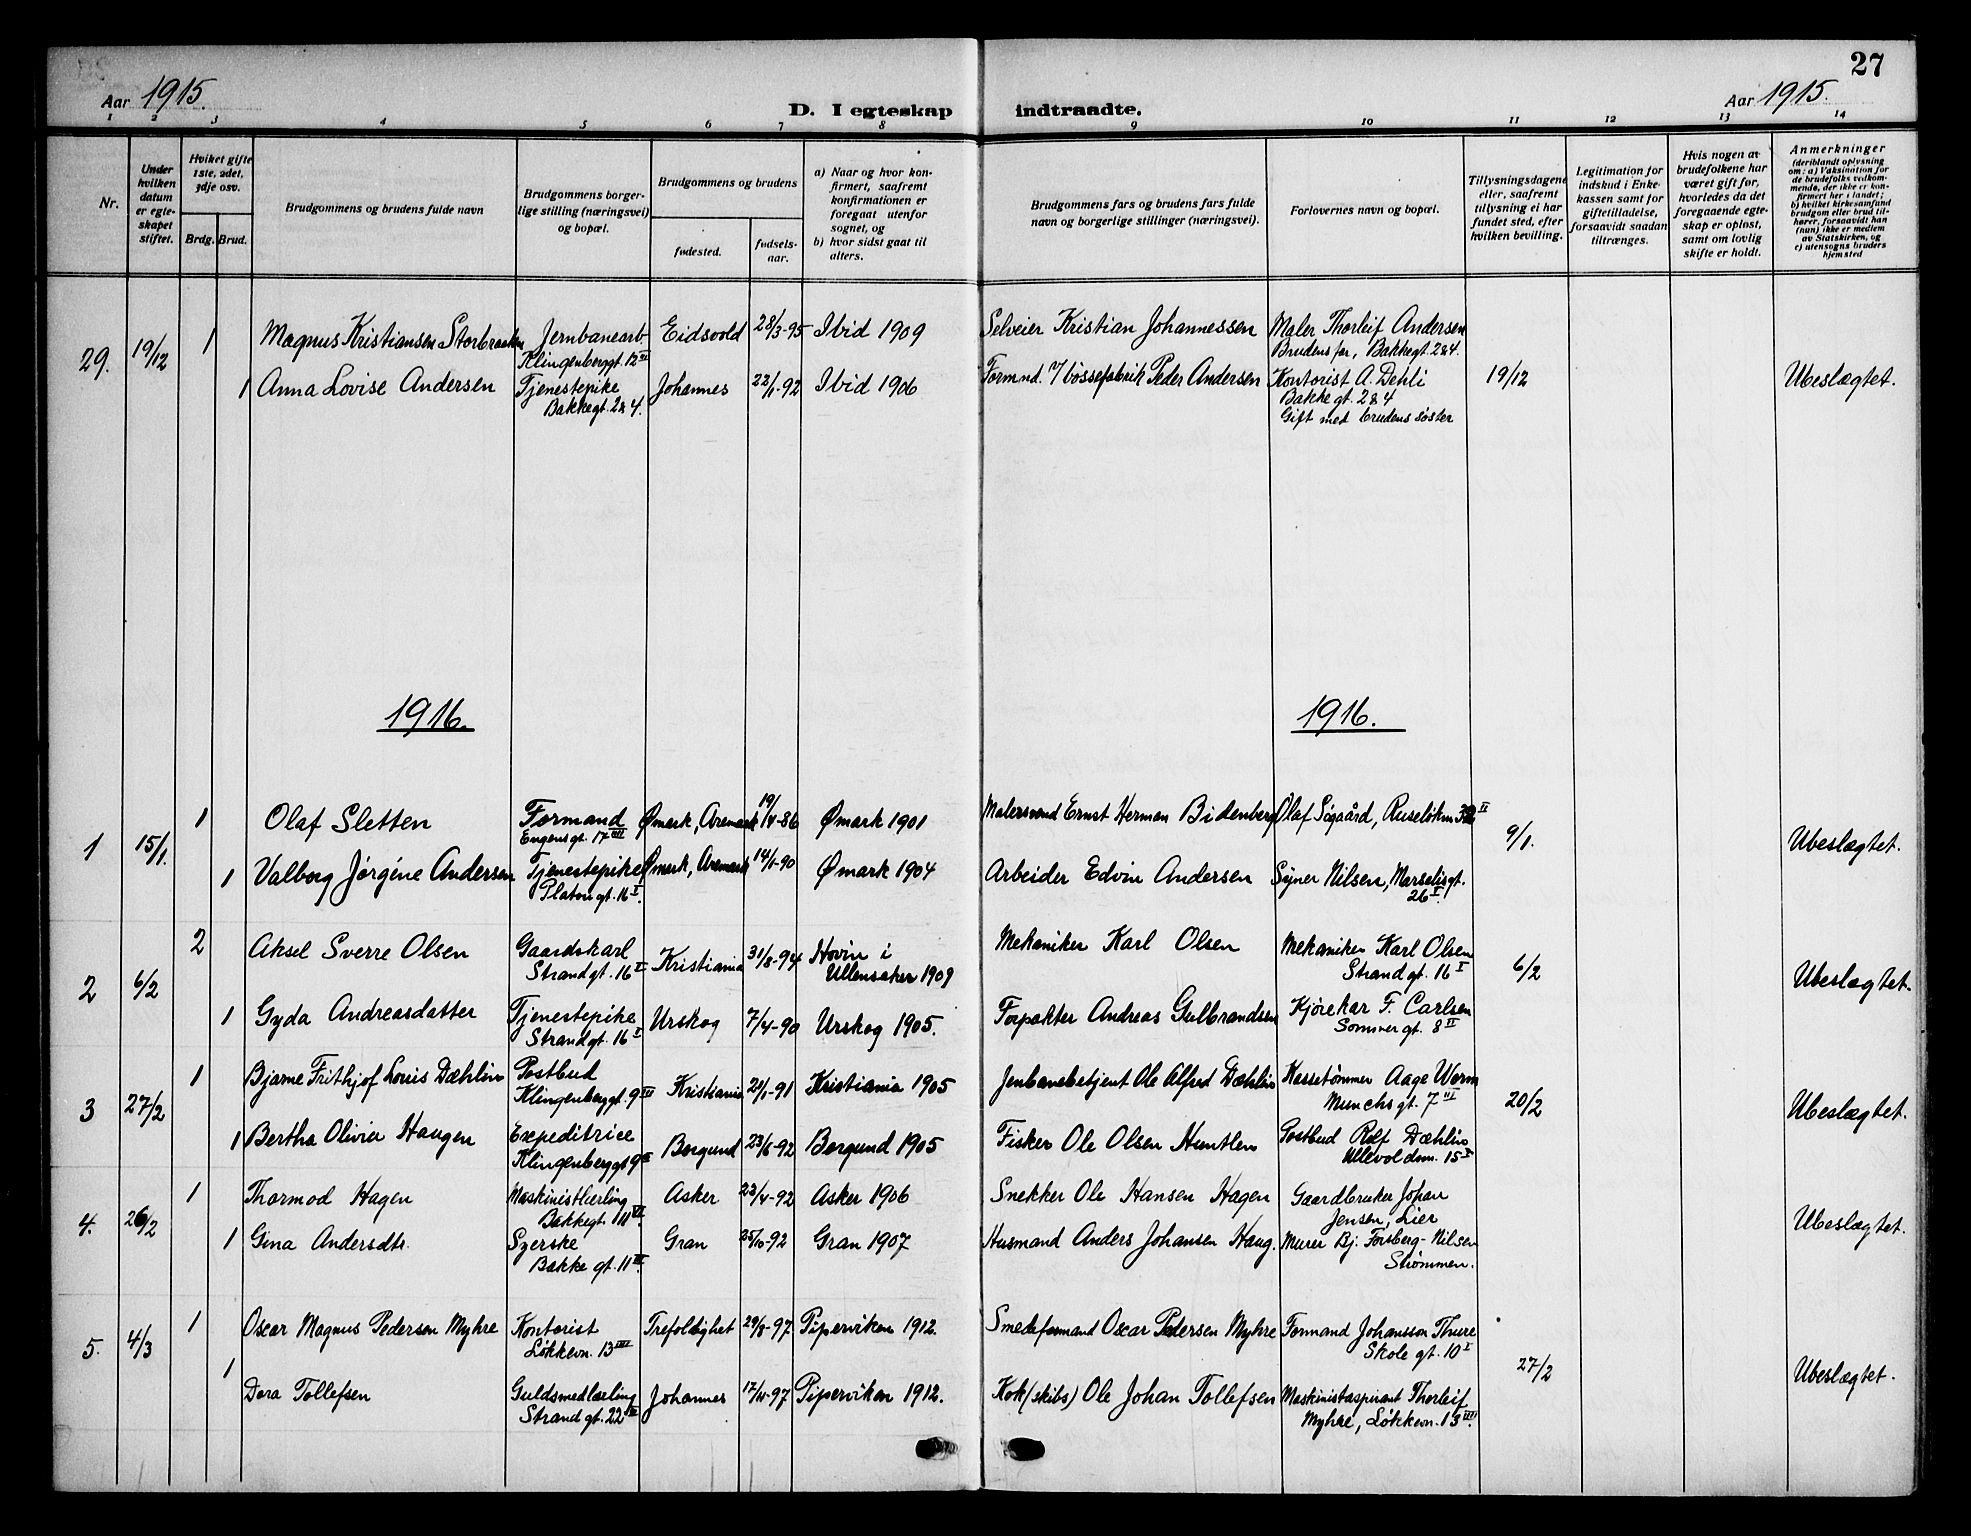 27
Aar 1915.
D. I egteskap indtraadte.
Aar 1915.
1 2 3 4 5 6 7 8 9 10 11 12 13 14
Nr.
Under hvilken datum er egteskapet stiftet.
Hvilket gifte 1ste, 2det, 3dje osv.
Brdg. Brud.
Brudgommens og brudens fulde navn
Brudgommens borgerlige stilling (næringsvei) og bopæl.
Brudgommens og brudens
fødested.
fødselsaar.
a) Naar og hvor konfirmert, saafremt konfirmationen er foregaat utenfor sognet, og
b) hvor sidst gaat til alters.
Brudgommens fars og brudens fars fulde navn og borgerlige stillinger (næringsvei).
Forlovernes navn og bopæl.
Tillysningsdagene eller, saafremt tillysning ei har fundet sted, efter hvilken bevilling.
Legitimation for indskud i Enkekassen samt for giftetilladelse, forsaavidt saadan tiltrænges.
Hvis nogen av brudefolkene har været gift før, hvorledes da det foregaaende egteskap er opløst, samt om lovlig skifte er holdt.
Anmerkninger (deriblandt oplysning om: a) Vaksination for de brudefolks vedkommende, der ikke er konfirmert her i landet; b) hvilket kirkesamfund brudgom eller brud tilhører, forsaavidt han (hun) ikke er medlem av Statskirken, og c) utensogns bruders hjemsted
29. 19/12 1 Magnus Kristiansen Storbraaten Jernbanearb. Klingenberggt. 12 III Eidsvold 28/3-95 Ibid 1909 Selveier Kristian Johannessen Maler Thorleif Andersen
Brudens far, Bakkegt. 2 & 4.
1 Anna Lovise Andersen Tjenestepike Bakkegt. 2 & 4. Johannes 22/1-92 Ibid 1906 Formnd. v/ bøssefabrik Peder Andersen Kontorist A. Dehli
Bakkegt. 2 & 4
Gift med brudens søster
19/12 Ubeslægtet.
1916. 1916.
1 15/1. 1 Olaf Sletten Formand Eugensgt. 17 III Ømark, Aremark 19/4-86 Ømark 1901 Malersvend Ernst Herman Bidenberg Olaf Sigaård, Ruseløkvn II
9/1. Ubeslægtet.
1 Valborg Jørgine Andersen Tjenestepike Platousgt. 16 I. Ømark, Aremark 14/1-90 Ømark 1904 Arbeider Edvin Andersen Nilsen, Marselisgt. 26 I.
2 6/2 2 Aksel Sverre Olsen Gaardskarl Strandgt. 16 I Kristiania 31/8-94 Hovin i Ullensaker 1909 Mekaniker Karl Olsen Mekaniker Karl Olsen
Strandgt. 16 I
6/2 Ubeslægtet.
1 Gyda Andreasdatter Tjenestepike Strandgt. 16 I Urskog 7/4-90 Urskog 1905. Forpakter Andreas Gulbrandsen Kjørekar F. Carlsen
Sommergt. 8 II
3 27/2 1 Bjarne Frithjof Louis Dæhlin Postbud Klingenberggt. 9 III Kristiania 21/1-91 Kristiania 1905 Jernbanebetjent Ole Alfred Dæhlin Kassetømmer Aage Worm
Munchsgt. 7 III
20/2 Ubeslægtet.
1 Bertha Olivia Haugen Expeditrice Klingenberggt 9 III Borgund 23/6-92 Borgund 1905 Fisker Ole Olsen Postbud Rolf Dæhlin
Ullevoldsvn. 15 I
4. 26/2 1 Thormod Hagen Maskinistlærling Bakkegt. 11 VI Asker 23/4-92 Asker 1906 Snekker Ole Hansen Hagen Gaardbruker Johan
Jensen, Lier
Ubeslægtet.
1 Gina Andersdtr. Syerske Bakkegt. 11 III. Gran 25/10-92 Gran 1907 Husmand Anders Johansen Haug. Murer Bj. Forsberg-Nilsen
Strømmen.
5. 4/3 1 Oscar Magnus Pedersen Myhre Kontorist Løkkevn. 13 IIII Trefoldighet 29/8-97 Piperviken 1912. Smedeformand Oscar Pedersen Myhre Formand Johansson Thure
Skolegt. 10 I
27/2 Ubeslægtet.
1 Dora Tollefsen Guldsmedlærling Strandgt. 22 III Johannes 17/11-97 Piperviken 1912. Kok (skibs) Ole Johan Tollefsen Maskinistaspirant Thorleif
Myhre, Løkkevn. 13 IIII.